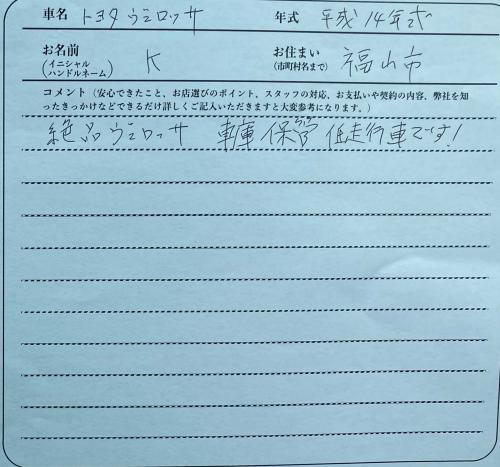 車名 トヨタ ヴェロッサ 年式 平成14年式
お名前 (イニシャル ハンドルネーム) K お住まい (市町村名まで) 福山市
コメント（安心できたこと、お店選びのポイント、スタッフの対応、お支払いや契約の内容、弊社を知
ったきっかけなどできるだけ詳しくご記入いただきますと大変参考になります。）
絶品ヴェロッサ 車庫保管 低走行車です!